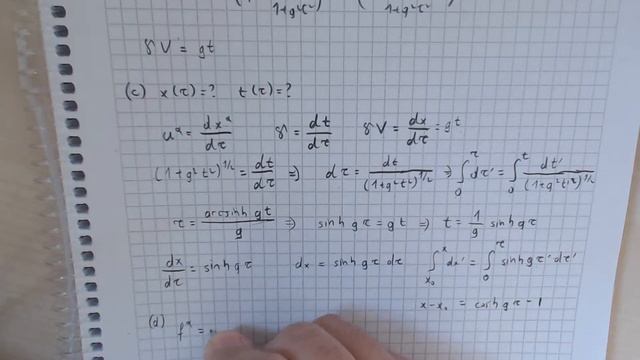 1+g²τ² 1+g²τ²
γV = gt
(c) x(τ)=? t(τ)=?
uᵅ = dxᵅ/dτ γ = dt/dτ γV = dx/dτ = gt
(1+g²t²)^1/2 = dt/dτ ⇒ dτ = dt/(1+g²t²)^1/2 ⇒ ∫₀^τ dτ' = ∫₀^t dt'/(1+g²t'²)^1/2
τ = arcsinh gt/g ⇒ sinh gτ = gt ⇒ t = 1/g sinh gτ
dx/dτ = sinh gτ dx = sinh gτ dτ ∫_x₀^x dx' = ∫₀^τ sinh gτ' dτ'
x-x₀ = cosh gτ - 1
(d) fᵅ =